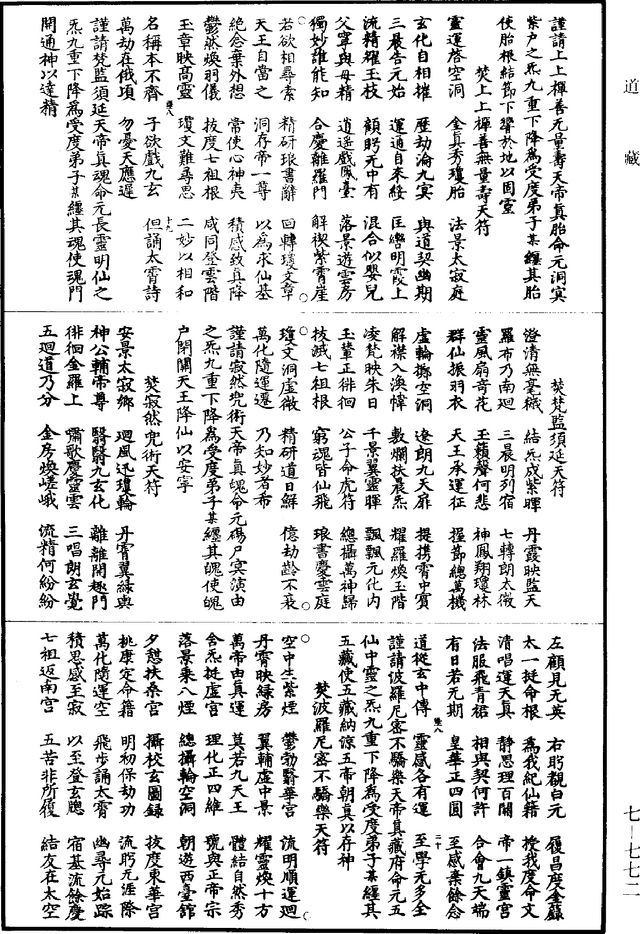 道藏
謹請上上禪善无量壽天帝真胎命元洞冥
紫戶之炁九重下降為受度弟子某纏其胎
使胎根結節下灌於地以固靈
焚上上禪善無量壽天符
靈運啓空洞　金真秀瓊胎　法景太寂庭
玄化自相摧　歷劫淪九冥　與道契幽期
三晨告元始　運通自來綏　匡轡明霞上
流精耀玉枝　顧眄元中有　混合似嬰兒
父寧與母精　逍遙戲鳳臺　落景遊雲房
獨妙誰能知　合慶離羅門　解襟紫霄崖
若欲相尋索　精研琅書辭　回轉瓊文章
天王自當之　洞存帝一尊　以為求仙基
絕念棄外想　常使心神夷　積感致真降
鬱然煥羽儀　拔度七祖根　咸同登雲階
玉章映高靈　瓊文難尋思　二妙以相和
名稱本不齊　子欲戲九玄　但誦太霄詩
萬劫在俄頃　勿憂天應遲
謹請梵監須延天帝真魂命元長靈明仙之
炁九重下降為受度弟子某纏其魂使魂門
開通神以達精
焚梵監須延天符
澄清無毫穢　結炁成紫暉　丹霞映監天
羅布乃南迴　三晨明列宿　七轉朗太微
靈風扇奇花　玉籟聲何悲　神鳳翔瓊林
群仙振羽衣　天王承運征　握節總萬機
虛輪擲空洞　遼朗九天扉　提携霄中賓
解襟入渙幃　敷爛扶晨炁　耀羅煥玉階
凌梵映朱日　千景翼靈暉　飄飄元化內
玉輦正徘徊　公子命虎符　總攝萬神歸
拔滅七祖根　窮魂皆仙飛　琅書慶雲庭
瓊文洞虛微　精研道日鮮　億劫齡不衰
萬化隨運遷　乃知妙者希
謹請寂然兜術天帝真魄命元碭尸冥演由
之炁九重下降為受度弟子某纏其魄使魄
戶閉關天王降仙以安寧
焚寂然兜術天符
安景太寂鄉　迴風迅瓊輪　丹霄翼綠輿
神公輔帝尊　翳翳九玄化　離離開趣門
徘徊金羅上　嘯歌慶靈雲　三唱朗玄覺
五迴道乃分　金房煥嵯峨　流精何紛紛
左顧見无英　右眄觀白元　履昌度金籙
太一挺命根　為我紀仙籍　授我度命文
清唱運天真　靜思理百關　帝一鎮靈宮
法服飛青裙　相與契何許　合會九天端
有日若元期　皇華正四圓　至感棄餘念
道從玄中傳　靈感各有運　至學元多全
謹請波羅尼密不驕樂天帝真藏府命元五
仙中靈之炁九重下降為受度弟子某纏其
五藏使五藏納諒五帝朝真以存神
焚波羅尼密不驕樂天符
空中生紫煙　鬱勃翳華宮　流明順運迴
丹霄映綠房　翼輔虛中景　耀靈煥十方
萬帝由真運　莫若九天王　體結自然秀
含炁挺虛宮　理化正四維　號與正帝宗
落景乘八煙　總攝輪空洞　朝遊西臺館
夕憩扶桑宮　攝校玄圖錄　拔度東華宮
桃康定命籍　明初保劫功　流眄元涯際
萬化隨運空　飛步誦太霄　幽尋元始踪
積思感至寂　以至登玄聰　宿基流餘慶
七祖返南宮　五苦非所履　結友在太空
七—七七二